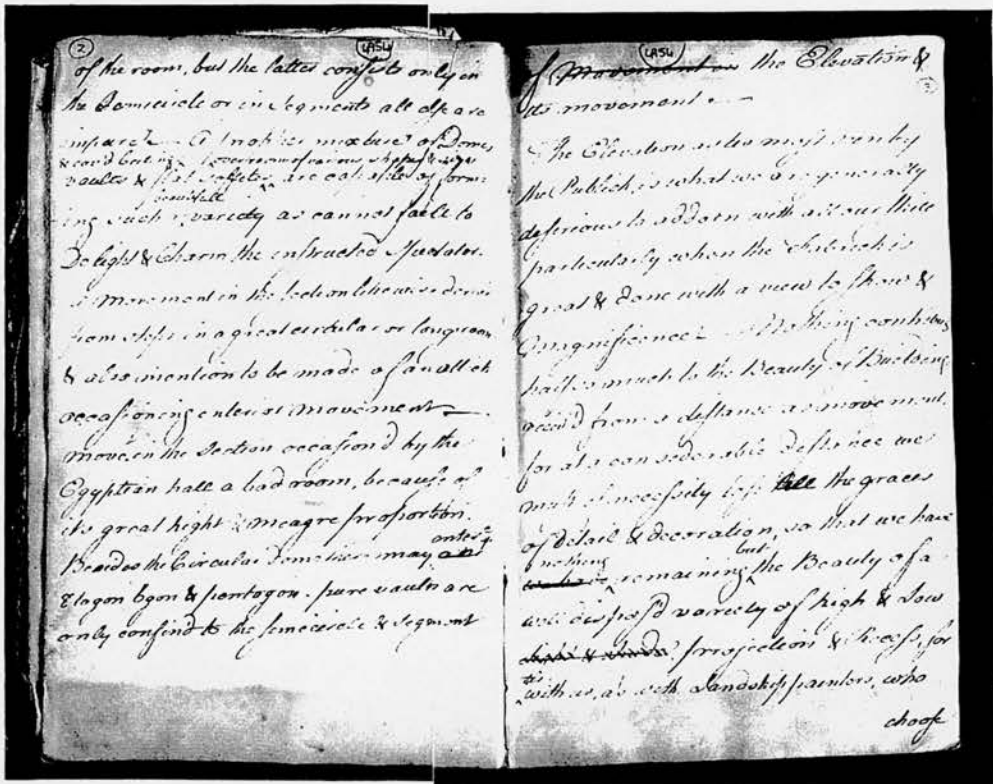 2
4954
of the room, but the latter consists only in
the Semicircle or in Segments all else are
impure. — A proper mixture of Domes
& cov'd Ceilings cover rooms of various shapes &
vaults & flat soffites, are capable of form:
beautifull
ing such variety as cannot faile to
Delight & Charm the instructed Spectator.
a movement in the section likewise
from steps in a great circular or long room
& also mention to be made of an
occasioning enterior movement —
move. in the Section occasion'd by the
Egyptian hall a bad room, because of
its great hight & meagre proportion.
Besides the Circular Domes there may
Elagon Ogon & pentagon. pure vaults are
only confind to the semecircle & segment
4954
of Movement in the Elevation &
its movement. —
The Elevation as tis most seen by
the Publick is what we are generally
desirious to addorn with all our skill
particularly when the Fabrick is
great & done with a view to Show &
Magnificence — Nothing contribu
half so much to the Beauty of Building
from a distance as movement.
for at a considerable distance we
must of necessity lose all the graces
of Detail & decoration, so that we have
nothing remaining but the Beauty of a
well dispos'd variety of high & Low
projection & Recess, for
tis with us, as with Landskip painters, who
choose